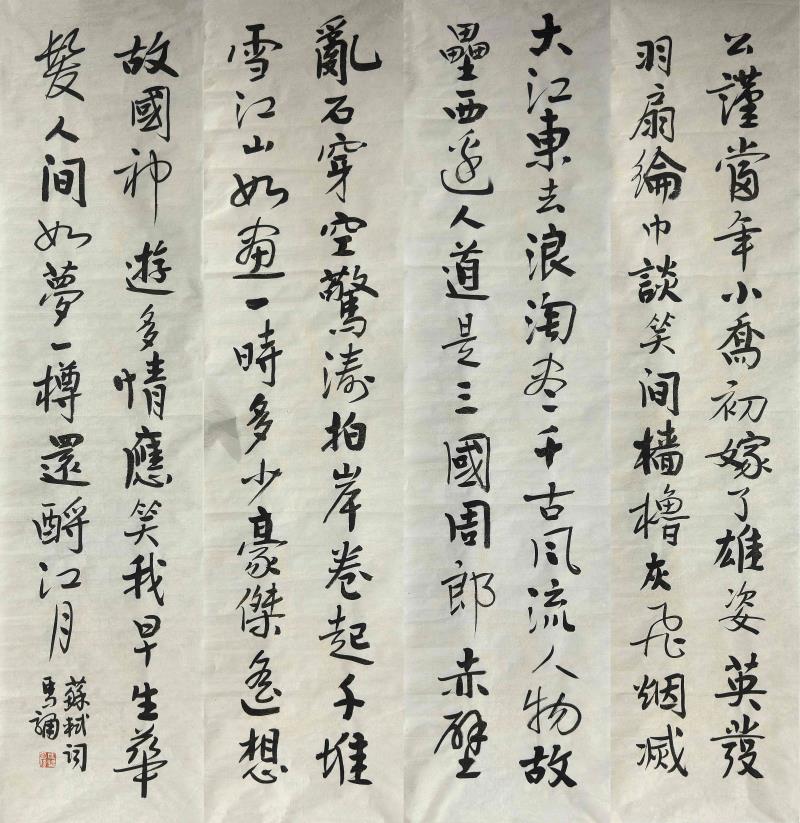 公謹當年小喬初嫁了雄姿英發
羽扇綸巾談笑间檣櫓灰飛烟滅
大江東去浪淘尽千古風流人物故
壘西边人道是三國周郎赤壁
亂石穿空驚濤拍岸卷起千堆
雪江山如畫一時多少豪傑遙想
故國神遊多情應笑我早生華
髮人间如夢一樽還酹江月
蘇軾词